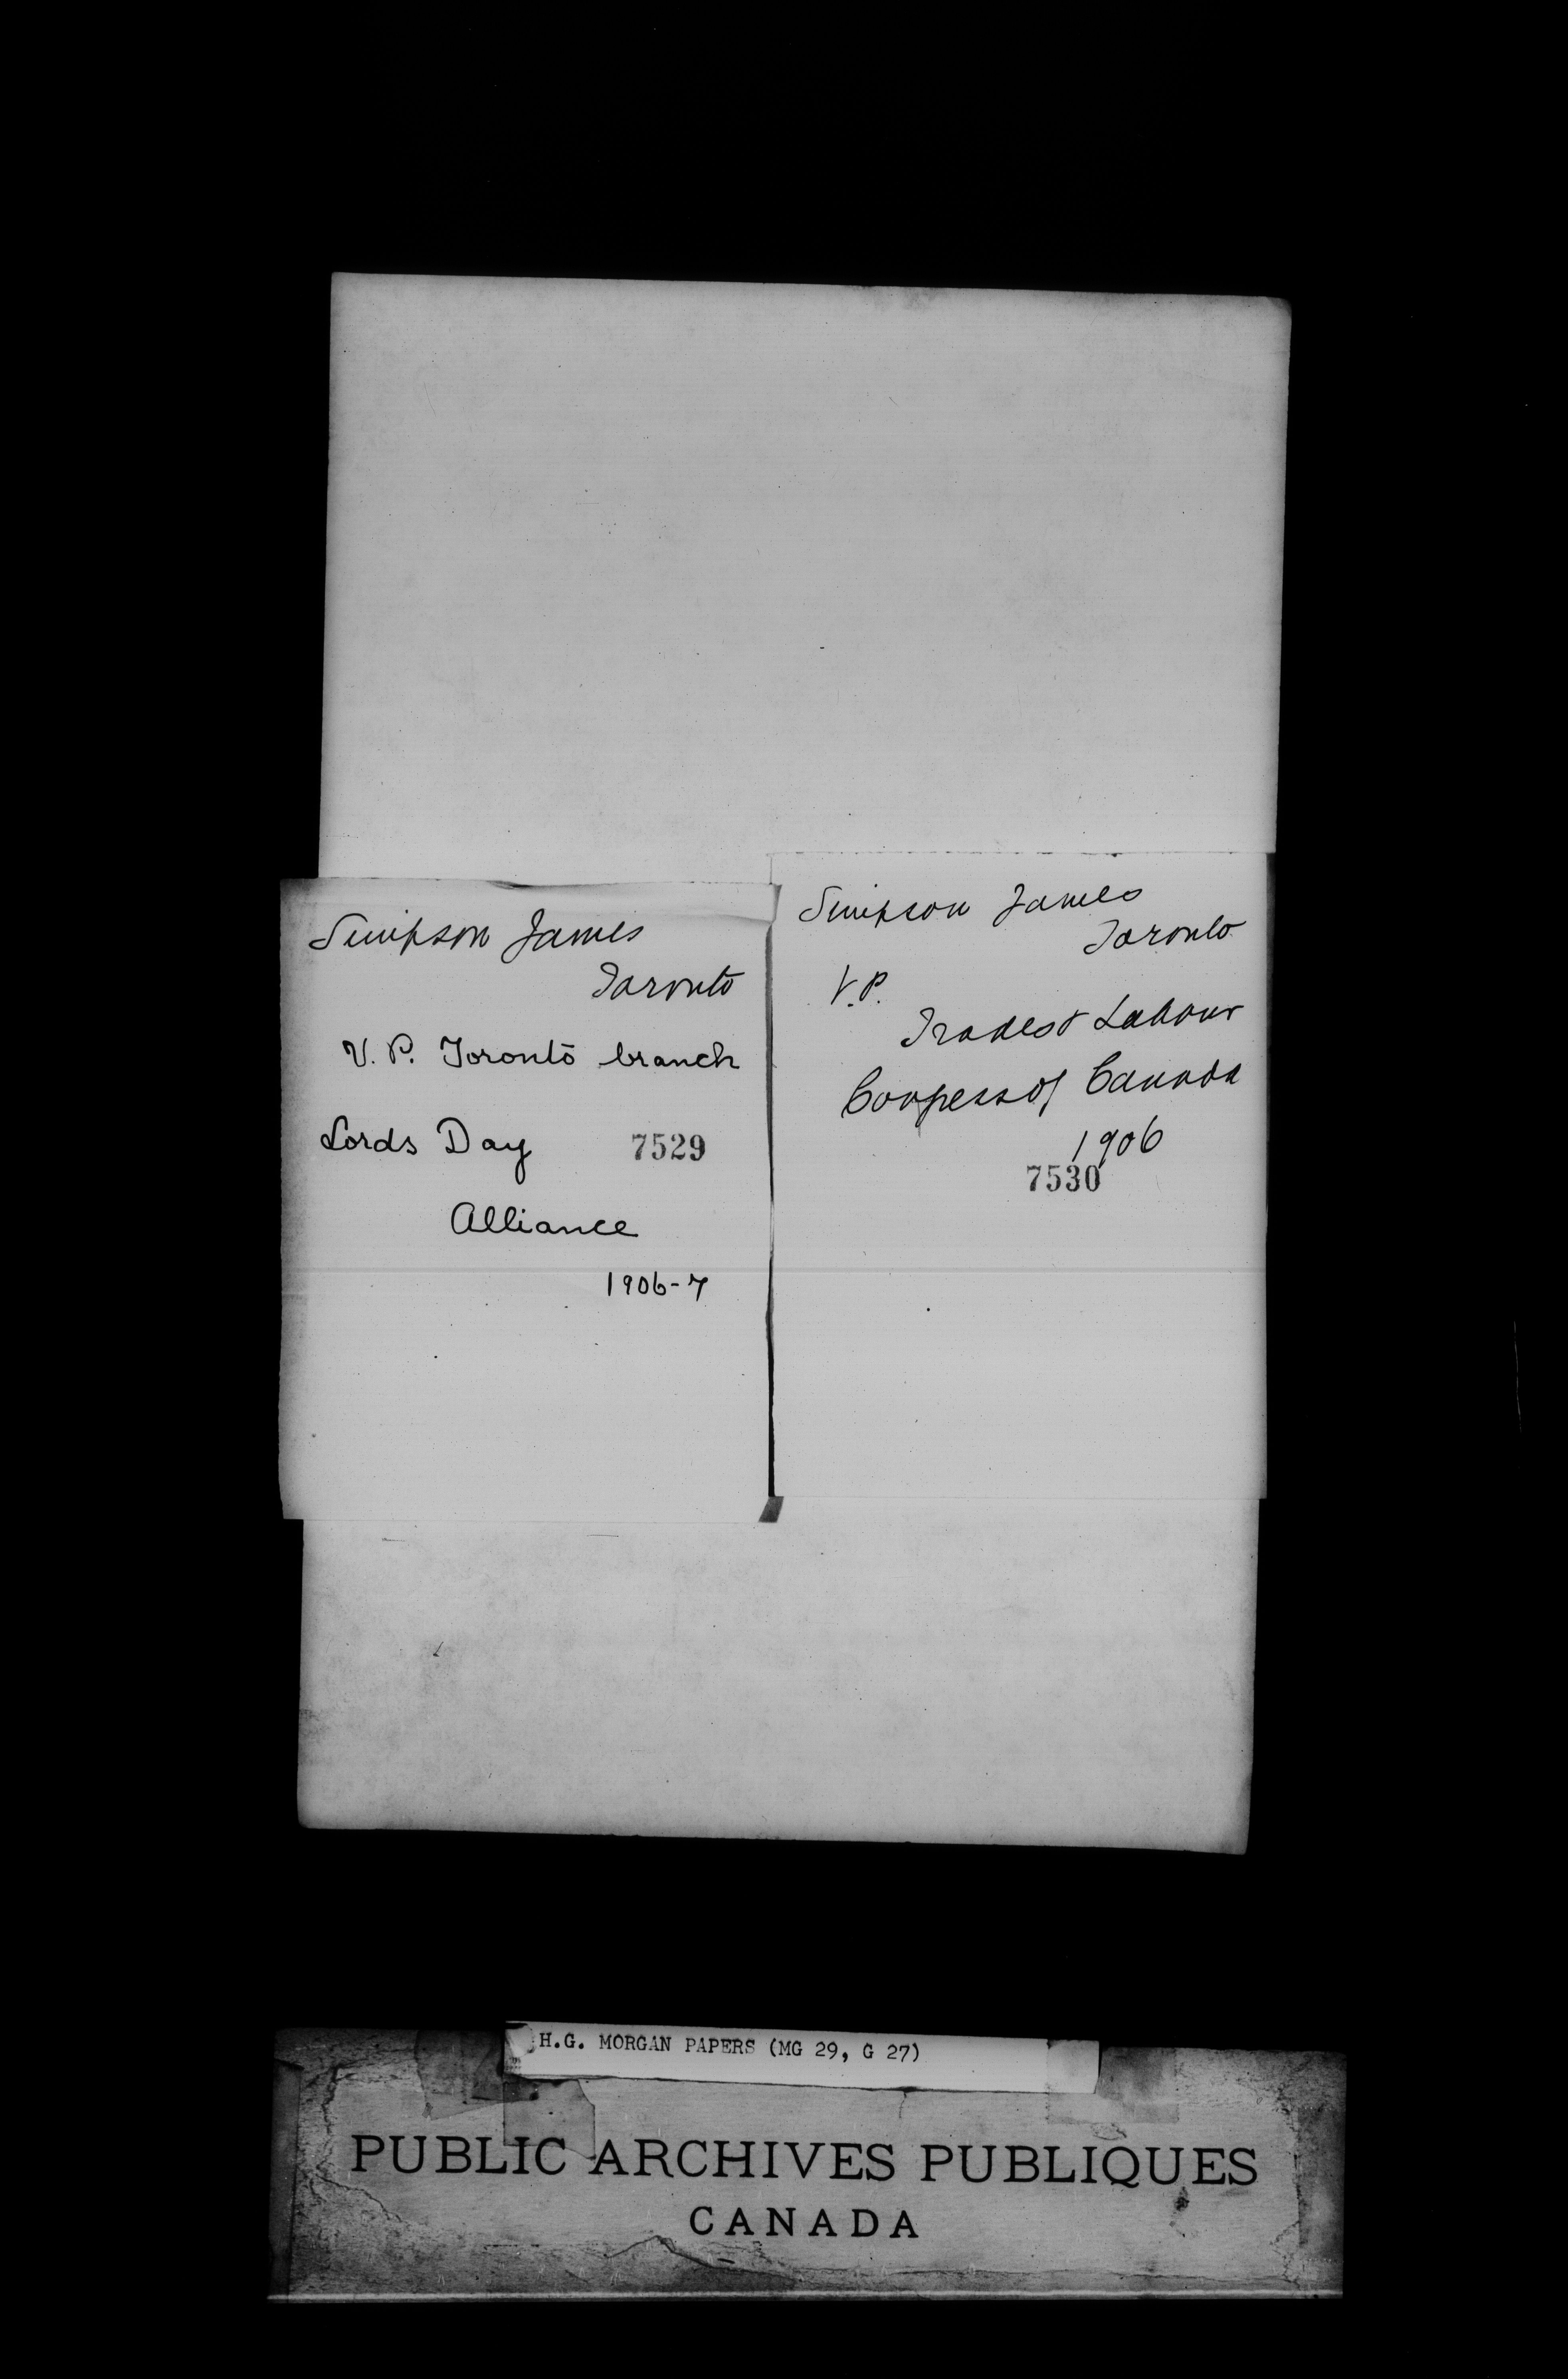 Simpson James
Toronto
V.P. Toronto branch
Lords Day 7529
Alliance
1906-7
Simpson James
Toronto
V.P.
Trades & Labour
Congress of Canada
1906
7530
H.G. MORGAN PAPERS (MG 29, G 27)
PUBLIC ARCHIVES PUBLIQUES
CANADA